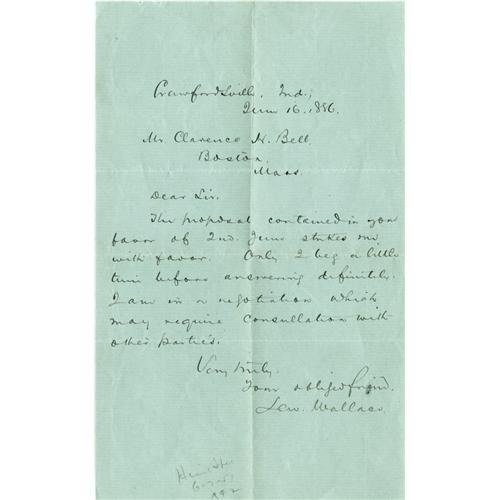 Crawfordsville, Ind;
June 16. 1886.
Mr. Clarence H. Bell,
Boston,
Mass.
Dear Sir.
The proposal contained in your
favor of 2nd. June strikes me
with favor. Only I beg a little
time before answering definitely.
I am in a negotiation which
may require consultation with
other parties.
Very truly,
Your obliged friend,
Lew. Wallace.